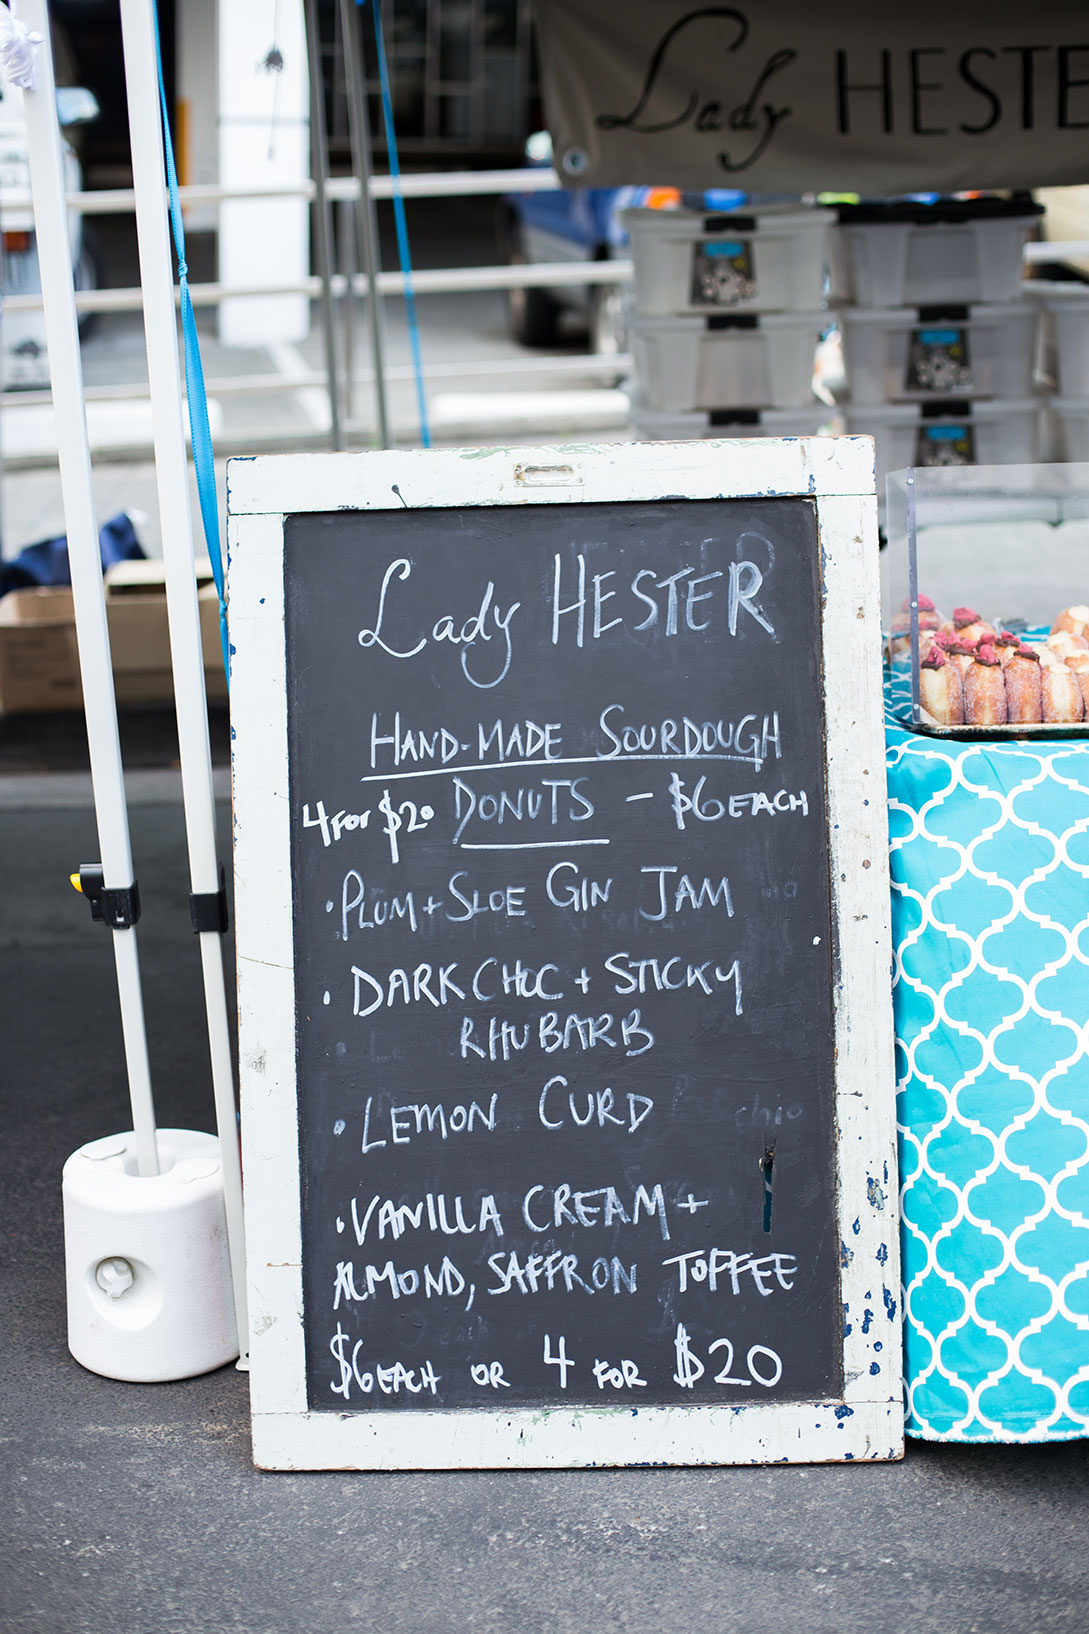 Lady HESTE
Lady HESTER
HAND-MADE SOURDOUGH
4 FOR $20 DONUTS - $6 EACH
• PLUM + SLOE GIN JAM
• DARK CHOC + STICKY
RHUBARB
• LEMON CURD
• VANILLA CREAM +
ALMOND, SAFFRON TOFFEE
$6 EACH OR 4 FOR $20